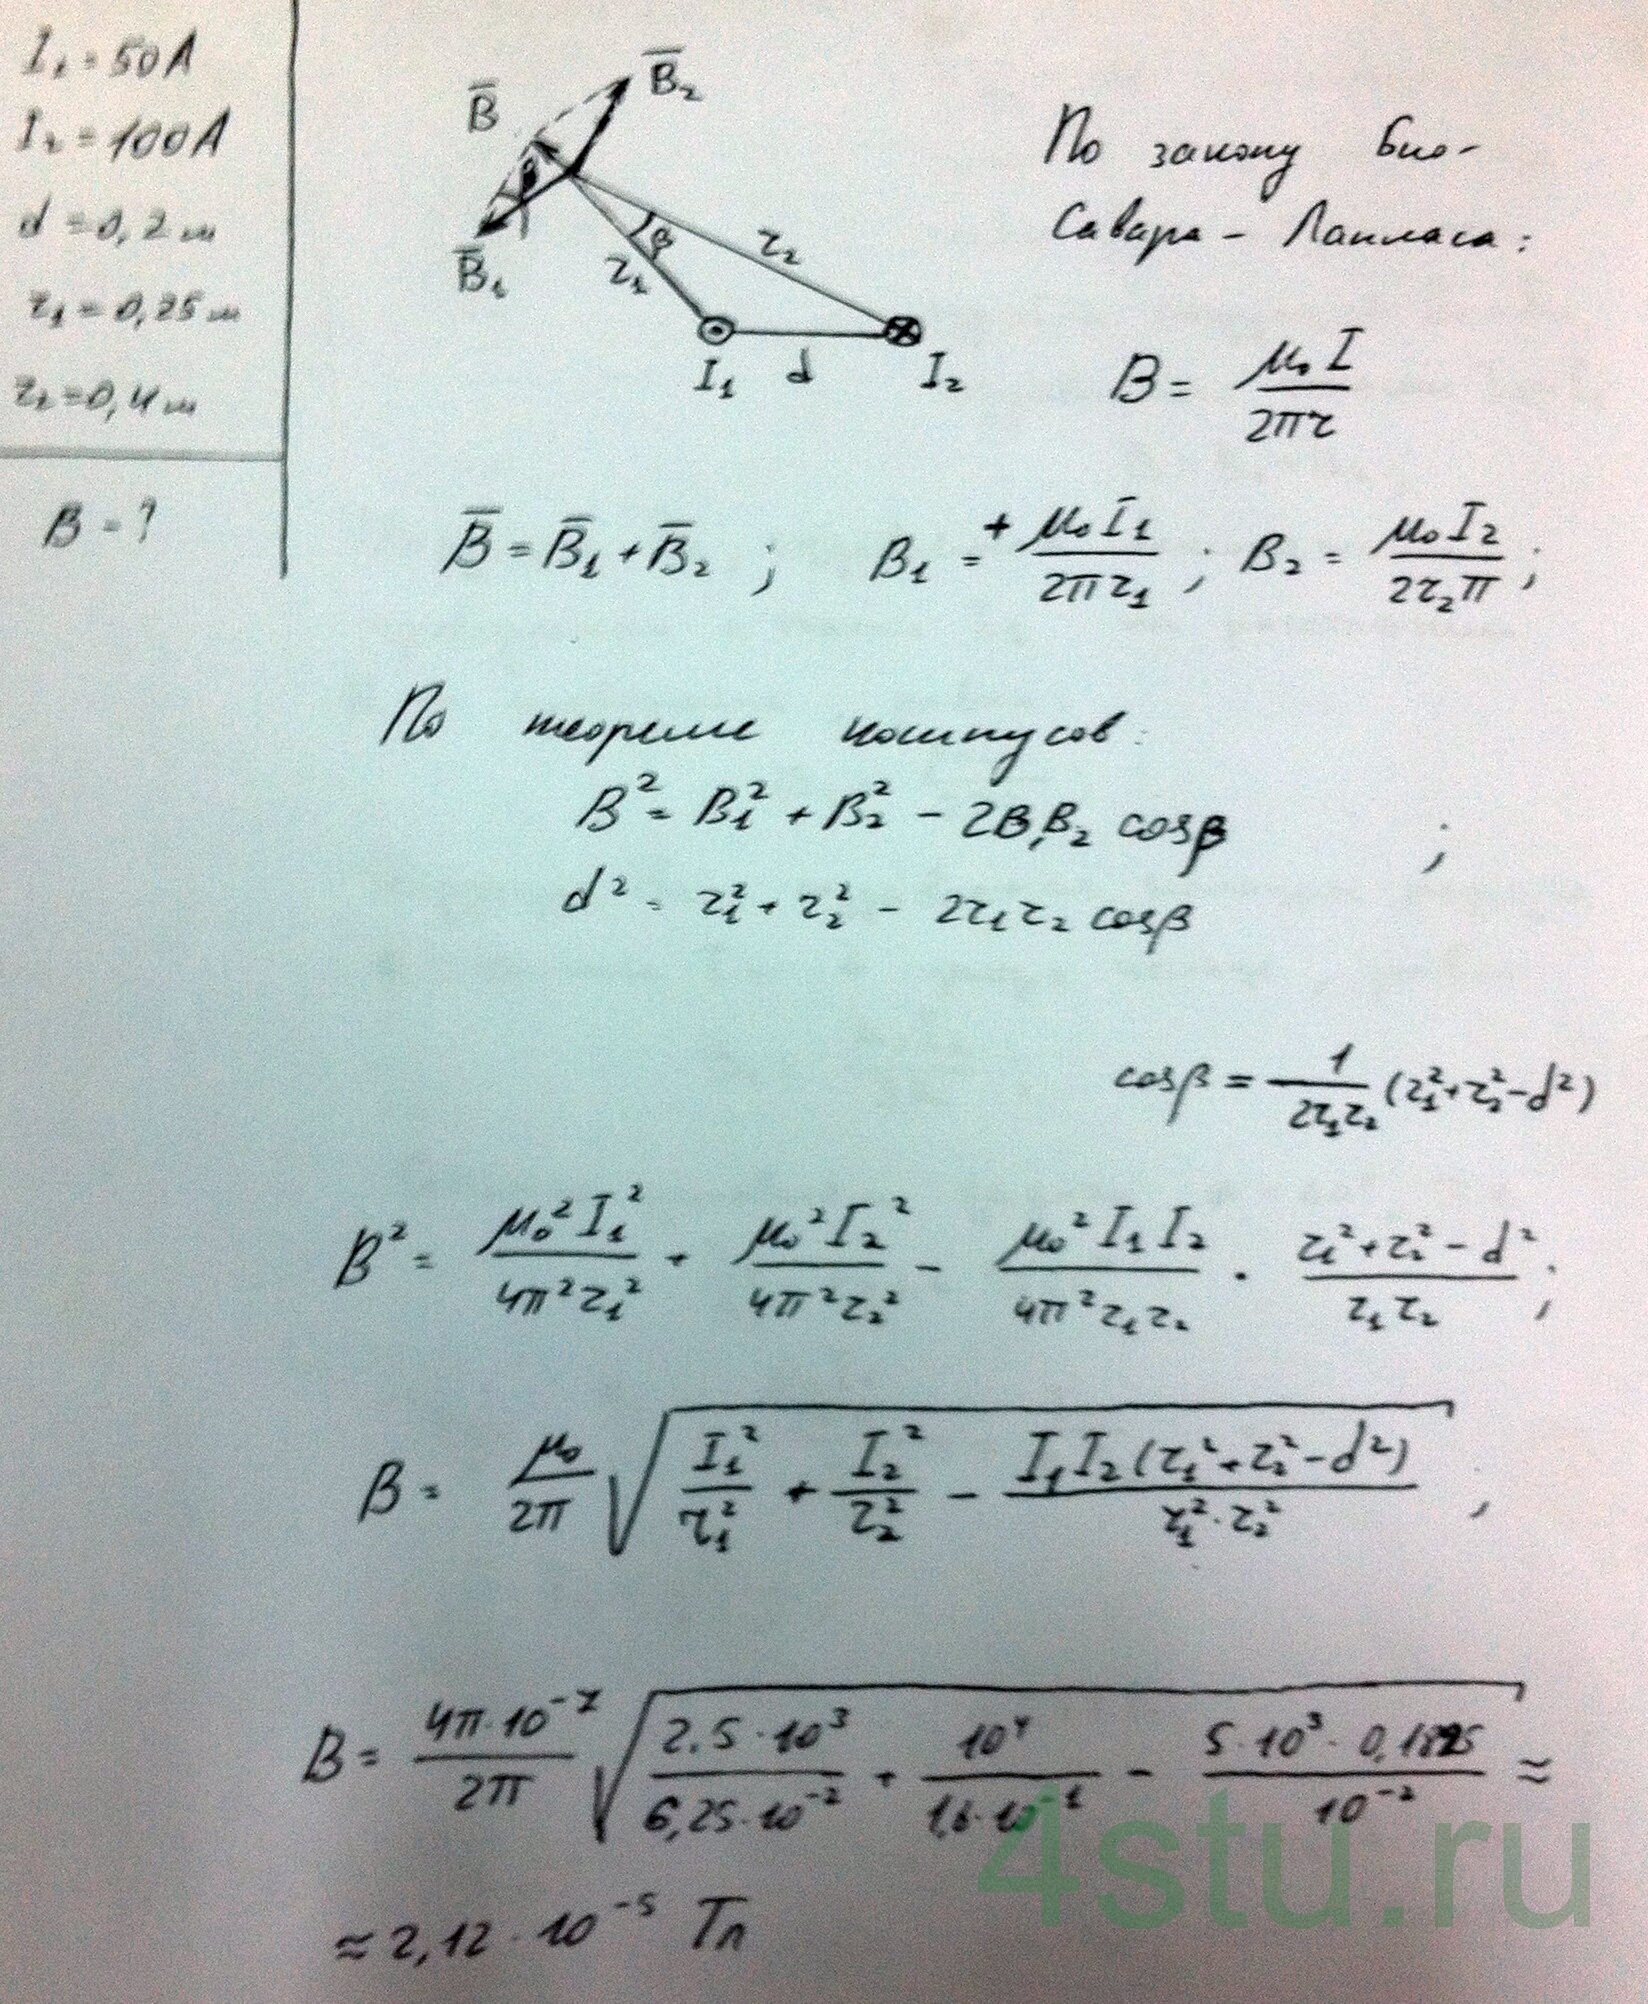 I₁ = 50 A
I₂ = 100 A
d = 0,2 м
r₁ = 0,25 м
r₂ = 0,4 м
B = ?
B̅
B̅₂
B̅₁
β
β
r₁
r₂
I₁
d
I₂
По закону Био-
Савара - Лапласа:
B = μ₀I / 2πr
B̅ = B̅₁ + B̅₂ ; B₁ = + μ₀I₁ / 2πr₁ ; B₂ = μ₀I₂ / 2r₂π ;
По теореме косинусов:
B² = B₁² + B₂² - 2B₁B₂ cosβ ;
d² = r₁² + r₂² - 2r₁r₂ cosβ
cosβ = 1 / 2r₁r₂ (r₁² + r₂² - d²)
B² = μ₀²I₁² / 4π²r₁² + μ₀²I₂² / 4π²r₂² - μ₀²I₁I₂ / 4π²r₁r₂ · r₁² + r₂² - d² / r₁r₂ ;
B = μ₀ / 2π √(I₁² / r₁² + I₂² / r₂² - I₁I₂(r₁² + r₂² - d²) / r₁² · r₂²) ,
B = 4π·10⁻⁷ / 2π √(2.5·10³ / 6,25·10⁻² + 10⁴ / 1,6·10⁻¹ - 5·10³·0,1825 / 10⁻²) ≈
≈ 2,12·10⁻⁵ Тл
4stu.ru